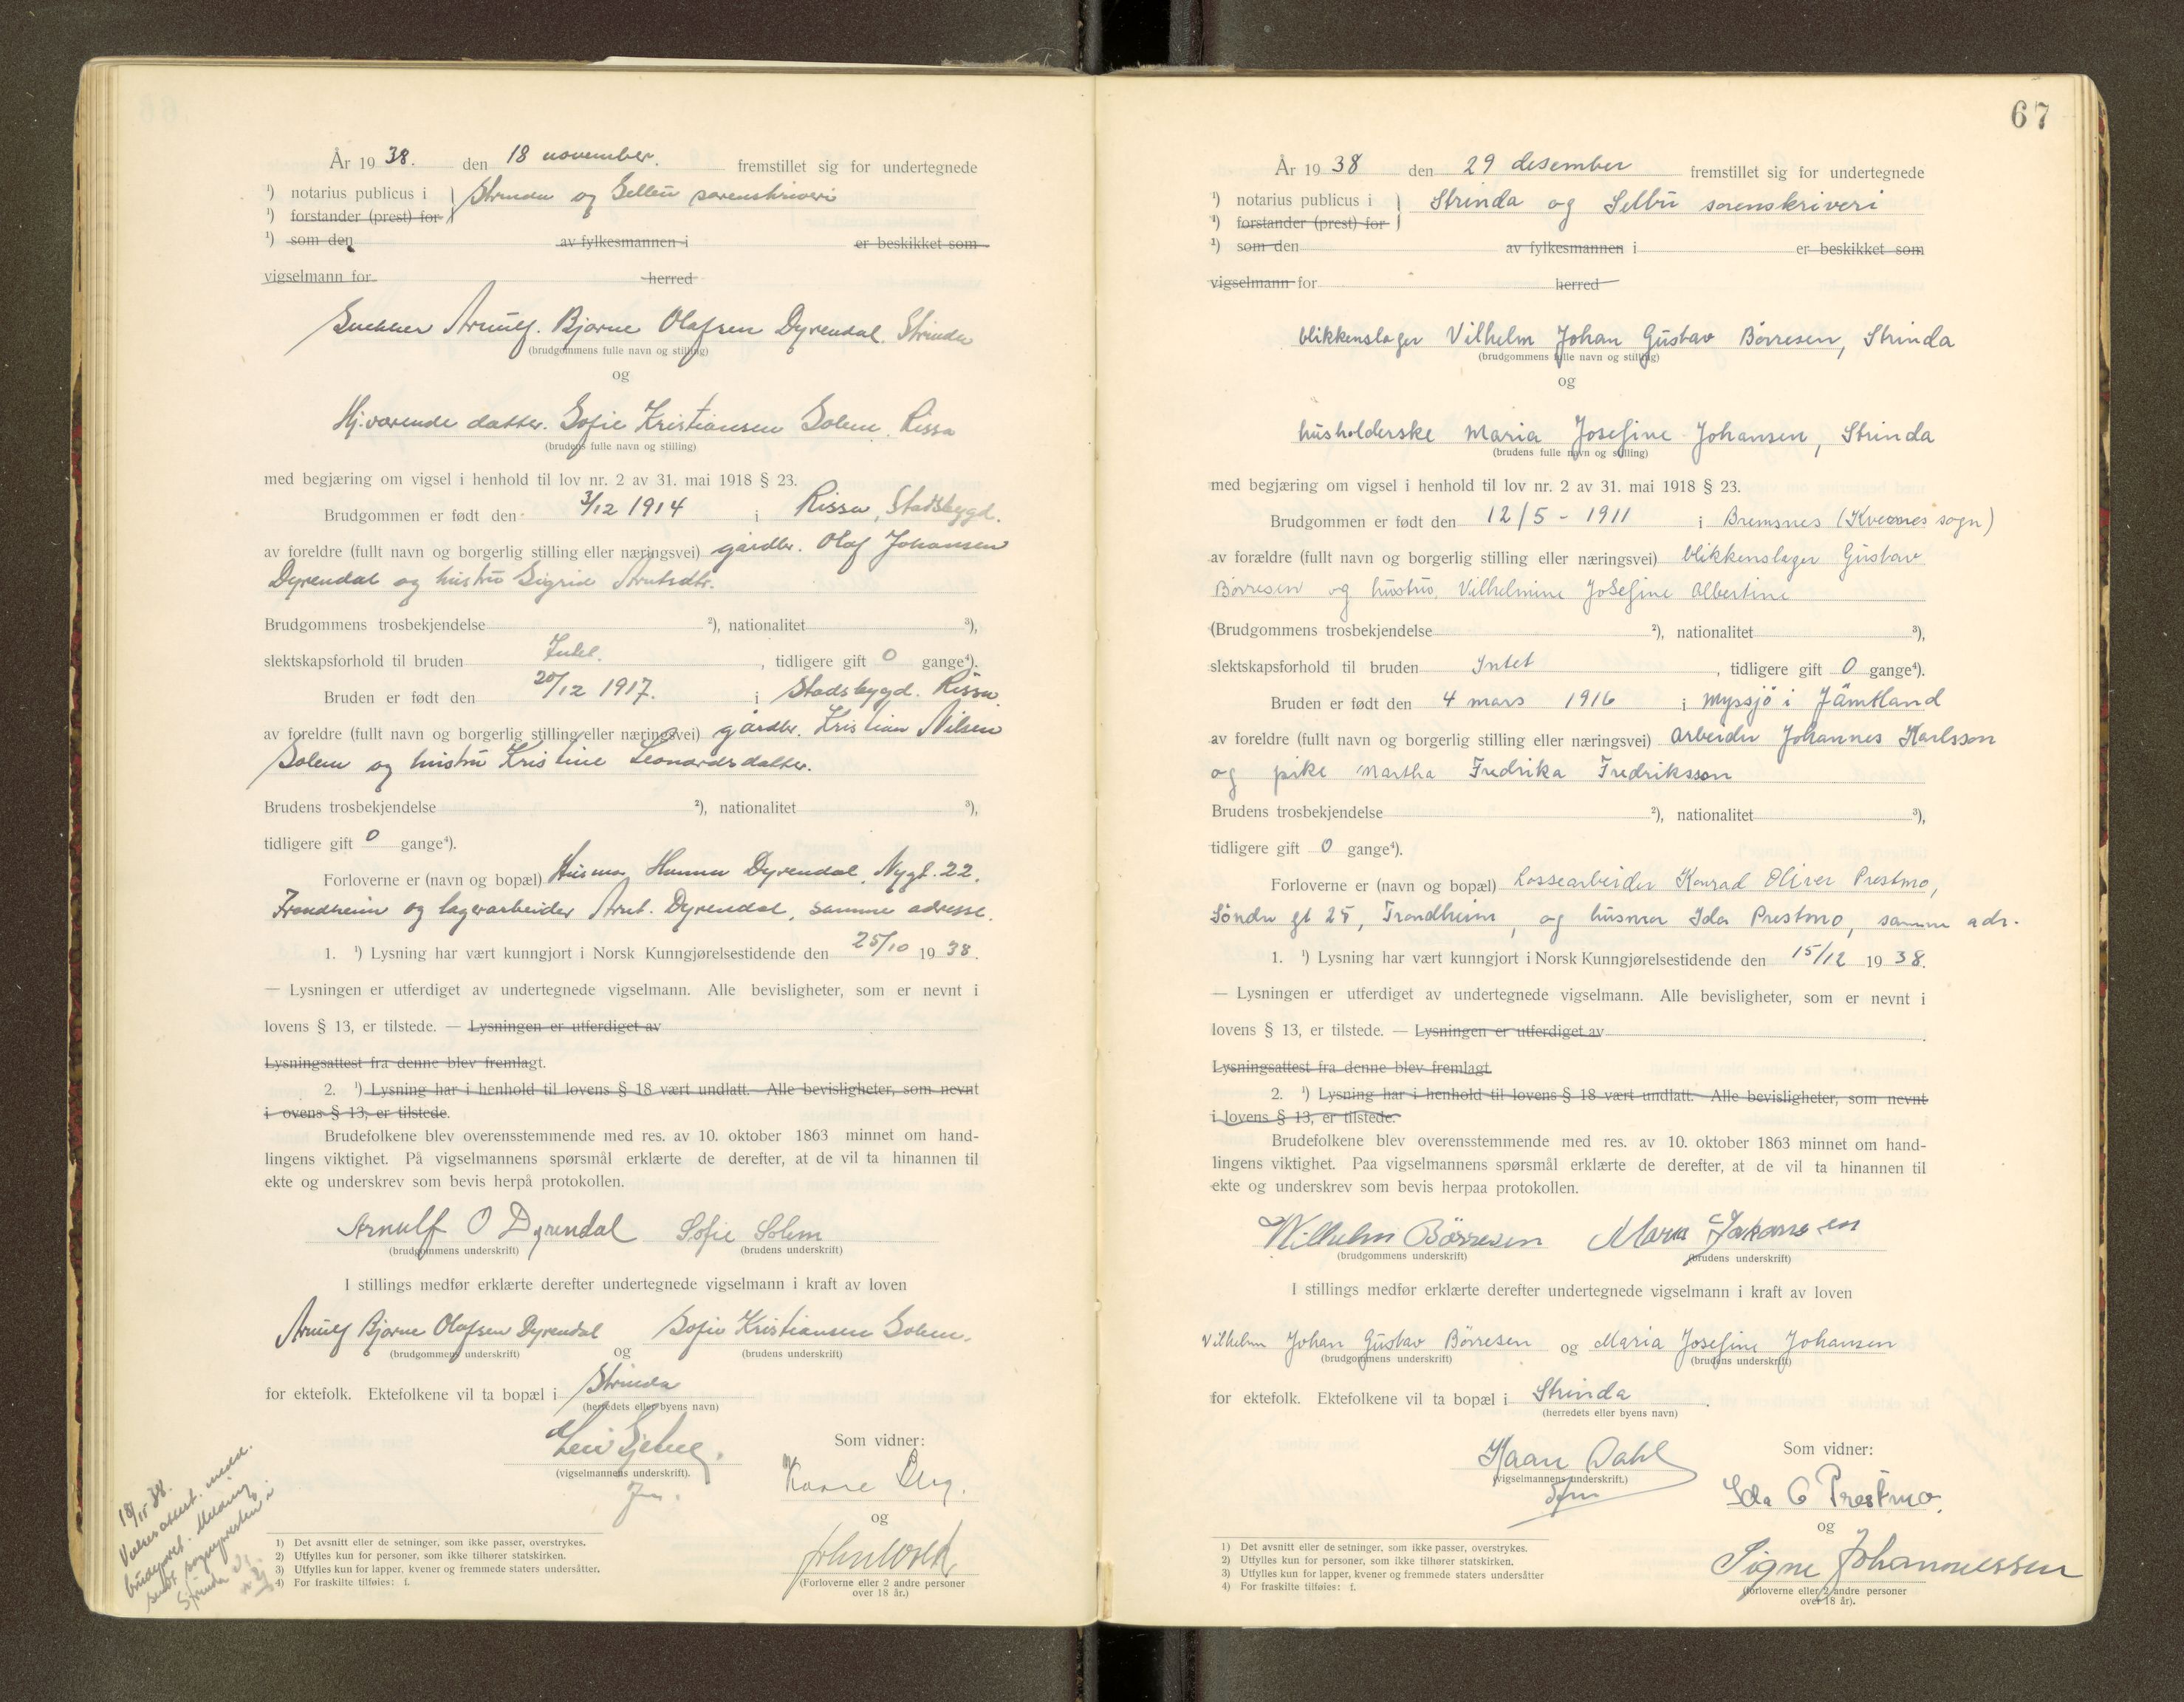 År 19 38. den 18 november. fremstillet sig for undertegnede
¹) notarius publicus i Strinda og Selbu sorenskriveri
¹) forstander (prest) for
¹) som den av fylkesmannen i er beskikket som
vigselmann for herred
Snekker Arnulf Bjarne Olafsen Dyrendal, Strinda
(brudgommens fulle navn og stilling)
og
Hj.værende datter. Sofie Kristiansen Solem, Rissa
(brudens fulle navn og stilling)
med begjæring om vigsel i henhold til lov nr. 2 av 31. mai 1918 § 23.
Brudgommen er født den 3/12 1914 i Rissa, Stadsbygd.
av foreldre (fullt navn og borgerlig stilling eller næringsvei) gårdbr. Olaf Johansen
Dyrendal og hustru Sigrid Arntsdtr.
Brudgommens trosbekjendelse ²), nationalitet ³),
slektskapsforhold til bruden Intet. , tidligere gift 0 gange⁴).
Bruden er født den 20/12 1917. i Stadsbygd. Rissa.
av foreldre (fullt navn og borgerlig stilling eller næringsvei) gårdbr. Kristian Nilsen
Solem og hustru Kristine Leonardsdatter.
Brudens trosbekjendelse ²), nationalitet ³),
tidligere gift 0 gange⁴).
Forloverne er (navn og bopæl) Husmor Hanna Dyrendal, Nygt. 22,
Trondheim og lagerarbeider Arnt. Dyrendal, samme adresse.
1. ¹) Lysning har vært kunngjort i Norsk Kunngjørelsestidende den 25/10 19 38.
— Lysningen er utferdiget av undertegnede vigselmann. Alle bevisligheter, som er nevnt i
lovens § 13, er tilstede. — Lysningen er utferdiget av
Lysningsattest fra denne blev fremlagt.
2. ¹) Lysning har i henhold til lovens § 18 vært undlatt. Alle bevisligheter, som nevnt
i ovens § 13, er tilstede.
Brudefolkene blev overensstemmende med res. av 10. oktober 1863 minnet om hand-
lingens viktighet. På vigselmannens spørsmål erklærte de derefter, at de vil ta hinannen til
ekte og underskrev som bevis herpå protokollen.
Arnulf O Dyrendal Sofie Solem
(brudgommens underskrift) (brudens underskrift)
I stillings medfør erklærte derefter undertegnede vigselmann i kraft av loven
Arnulf Bjarne Olafsen Dyrendal og Sofie Kristiansen Solem.
(brudgommens underskrift) (brudens underskrift)
for ektefolk. Ektefolkene vil ta bopæl i Strinda
(herredets eller byens navn)
Som vidner:
(vigselmannens underskrift).
Kaare
og
(Forloverne eller 2 andre personer
over 18 år.)
18/11 38.
Vielsesattest. medd.
brudeparet. Melding
sendt sognepresten i
Strinda
1) Det avsnitt eller de setninger, som ikke passer, overstrykes.
2) Utfylles kun for personer, som ikke tilhører statskirken.
3) Utfylles kun for lapper, kvener og fremmede staters undersåtter.
4) For fraskilte tilføies: f.
67
År 19 38 den 29 desember fremstillet sig for undertegnede
¹) notarius publicus i Strinda og Selbu sorenskriveri
¹) forstander (prest) for
¹) som den av fylkesmannen i er beskikket som
vigselmann for herred
blikkenslager Vilhelm Johan Gustav Børresen, Strinda
(brudgommens fulle navn og stilling)
og
husholderske Maria Josefine Johansen, Strinda
(brudens fulle navn og stilling)
med begjæring om vigsel i henhold til lov nr. 2 av 31. mai 1918 § 23.
Brudgommen er født den 12/5 - 1911 i Bremsnes (Kvernes sogn)
av forældre (fullt navn og borgerlig stilling eller næringsvei) blikkenslager Gustav
Børresen og hustru Vilhelmine Josefine Albertine
(Brudgommens trosbekjendelse ²), nationalitet ³),
slektskapsforhold til bruden Intet , tidligere gift 0 gange⁴).
Bruden er født den 4 mars 1916 i Myssjö i Jämtland
av foreldre (fullt navn og borgerlig stilling eller næringsvei) arbeider Johannes Karlsson
og pike Martha Fredrika Fredriksson
Brudens trosbekjendelse ²), nationalitet ³),
tidligere gift 0 gange⁴).
Forloverne er (navn og bopæl) Lossearbeider Konrad Oliver Prestmo,
Søndre gt 25, Trondheim, og husmor Ida Prestmo, samme adr.
1. ¹) Lysning har vært kunngjort i Norsk Kunngjørelsestidende den 15/12 19 38.
— Lysningen er utferdiget av undertegnede vigselmann. Alle bevisligheter, som er nevnt i
lovens § 13, er tilstede. — Lysningen er utferdiget av
Lysningsattest fra denne blev fremlagt.
2. ¹) Lysning har i henhold til lovens § 18 vært undlatt. Alle bevisligheter, som nevnt
i lovens § 13, er tilstede.
Brudefolkene blev overensstemmende med res. av 10. oktober 1863 minnet om hand-
lingens viktighet. Paa vigselmannens spørsmål erklærte de derefter, at de vil ta hinannen til
ekte og underskrev som bevis herpaa protokollen.
Wilhelm Börresen Maria Johansen
(brudgommens underskrift) (brudens underskrift)
I stillings medfør erklærte derefter undertegnede vigselmann i kraft av loven
Vilhelm Johan Gustav Børresen og Maria Josefine Johansen
(brudgommens underskrift) (brudens underskrift)
for ektefolk. Ektefolkene vil ta bopæl i Strinda.
(herredets eller byens navn)
Haan Dahl
(vigselmannens underskrift.)
Som vidner:
Ida O Prestmo.
og
Signe Johannessen
(forloverne eller 2 andre personer
over 18 år).
1) Det avsnitt eller de setninger, som ikke passer, overstrykes.
2) Utfylles kun for personer, som ikke tilhører statskirken.
3) Utfylles kun for lapper, kvener og fremmede staters undersåtter
4) For fraskilte tilføies: f.